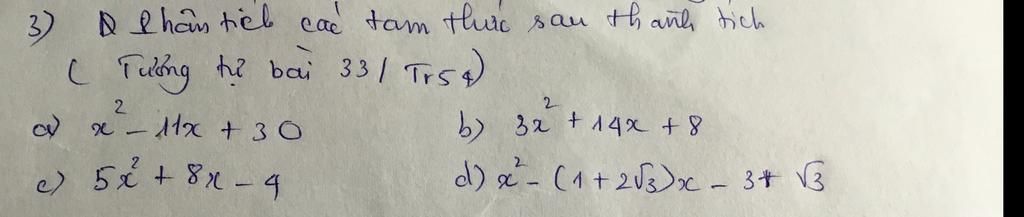 3) Phân tích các tam thức sau thành tích
( Tương tự bài 33 / Tr54)
a) x² - 11x + 30 b) 3x² + 14x + 8
c) 5x² + 8x - 4 d) x² - (1 + 2√3)x - 3 + √3